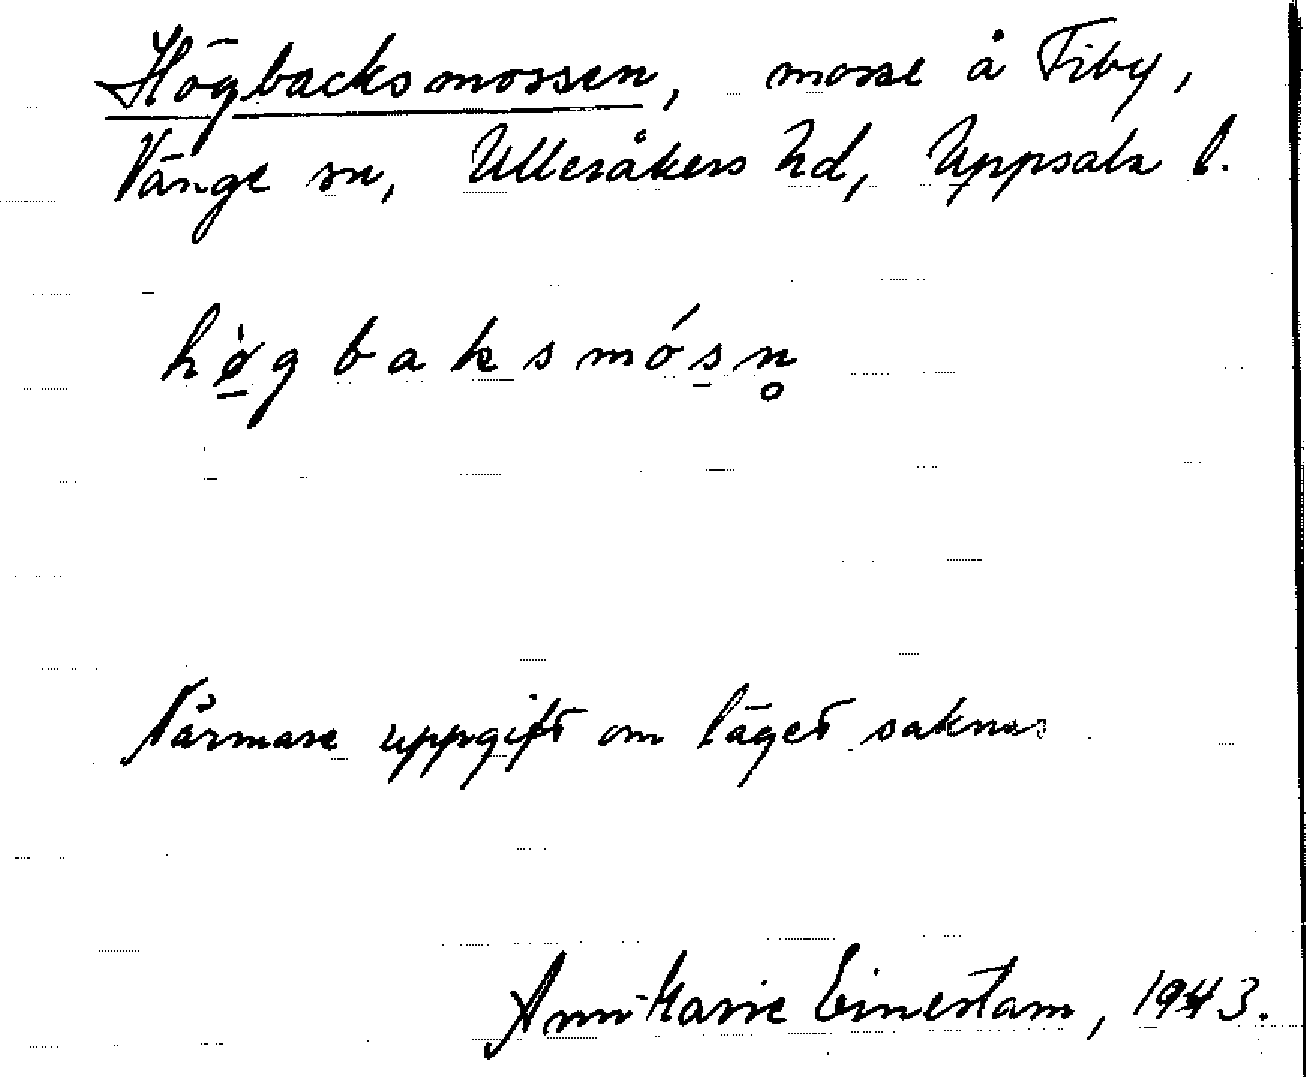 Högbacksmossen, mosse å Fiby,
Vänge sn, Ulleråkers hd, Uppsala l.
hø̀gbaksmósn̥
Närmare uppgift om läget saknas.
Ann-Marie Einerstam, 1943.